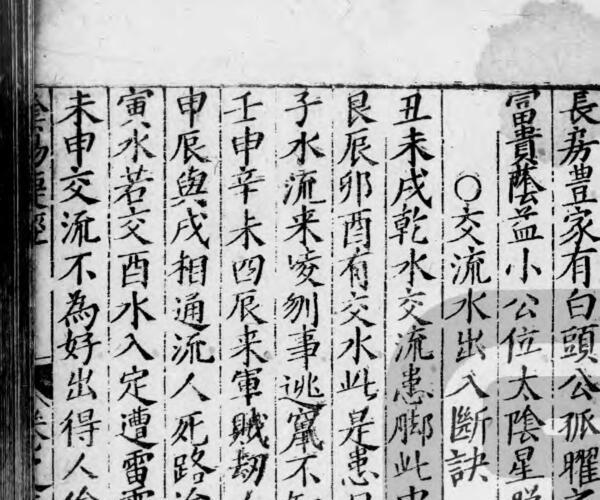 長房豊家有白頭公孤曜
富貴蔭益小公位太陰星
○交流水出入斷訣
丑未戌乾水交流患脚此
艮辰卯酉有交水此是患
子水流来凌刎事逃竄不
壬申辛未四辰来軍賊劫人
申辰與戌相通流人死路
寅水若交酉水入定遭雷
未申交流不為好出得人